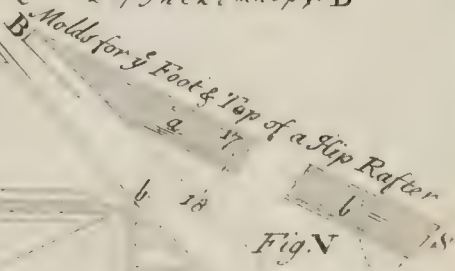 B
Molds for yᵉ Foot & Top of a Hip Rafter
B
a 17
b 18
b 18
Fig. V